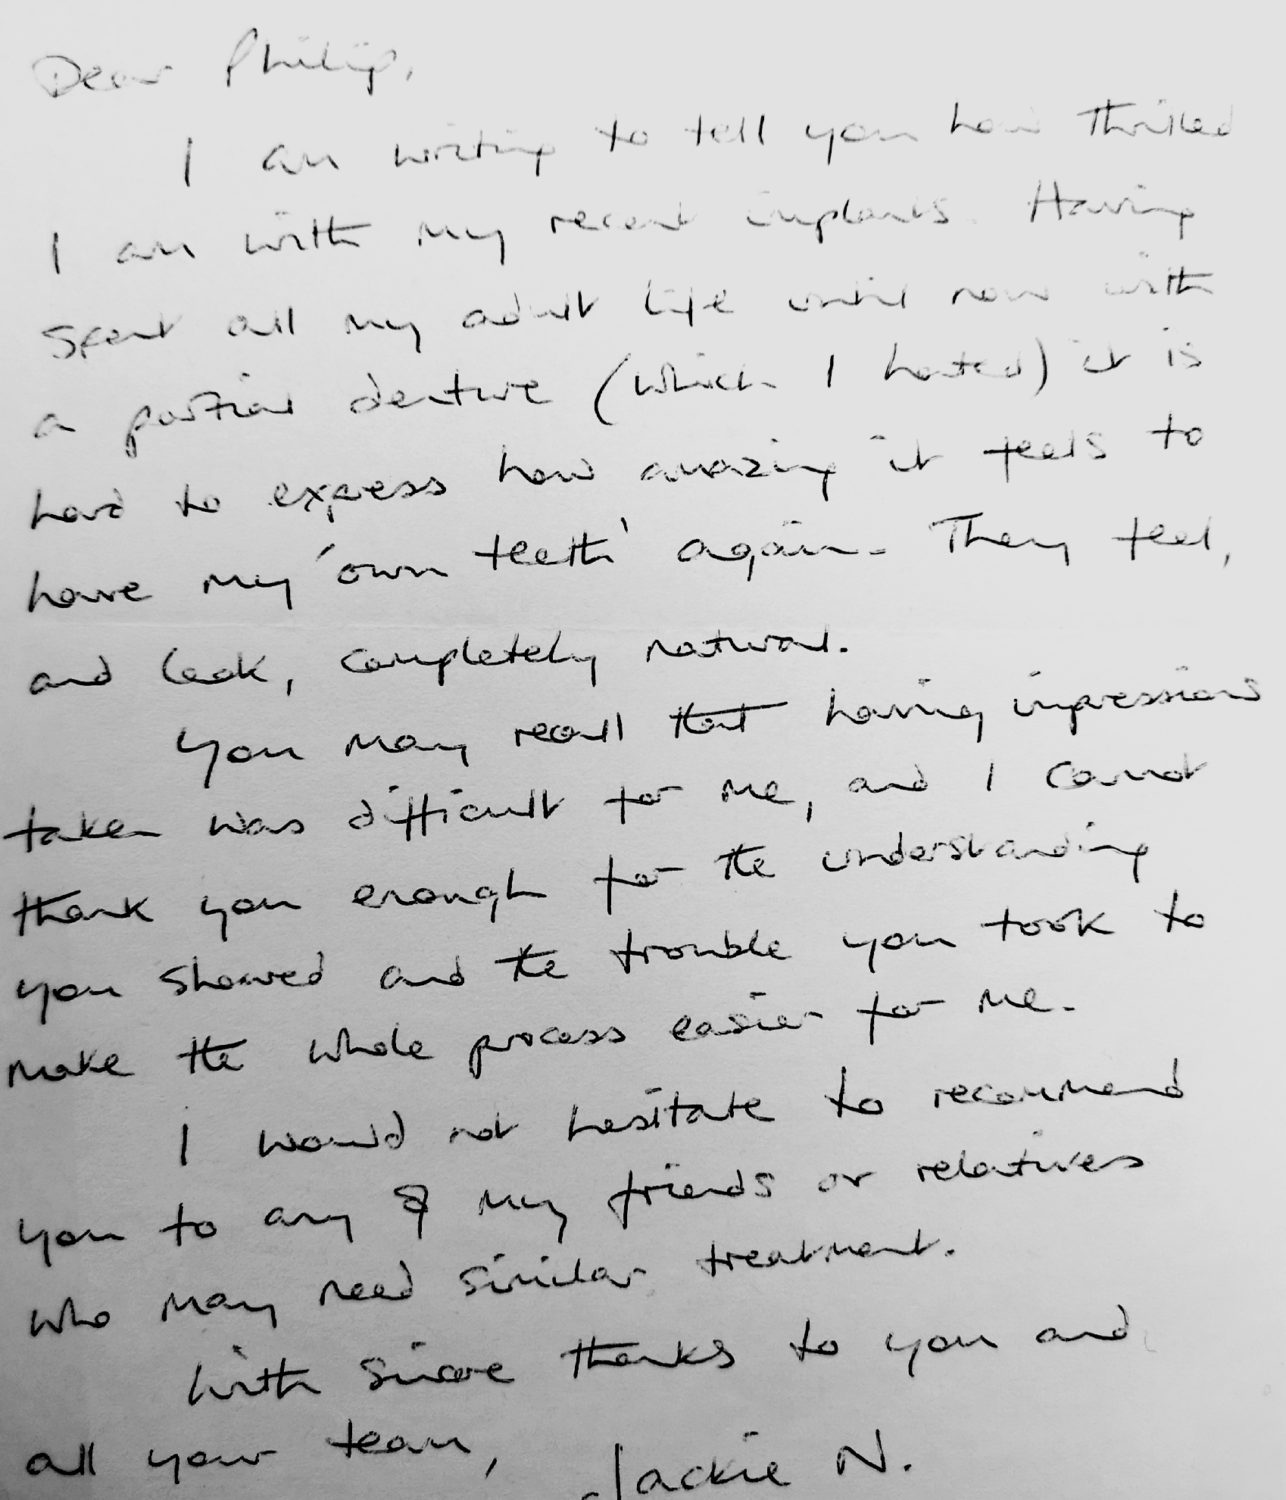 Dear Philip,
I am writing to tell you how thrilled
I am with my recent implants. Having
spent all my adult life until now with
a partial denture (which I hated) it is
hard to express how amazing it feels to
have my 'own teeth' again. They feel,
and look, completely natural.
You may recall that having impressions
taken was difficult for me, and I cannot
thank you enough for the understanding
you showed and the trouble you took to
make the whole process easier for me.
I would not hesitate to recommend
you to any of my friends or relatives
who may need similar treatment.
With sincere thanks to you and
all your team,
Jackie N.